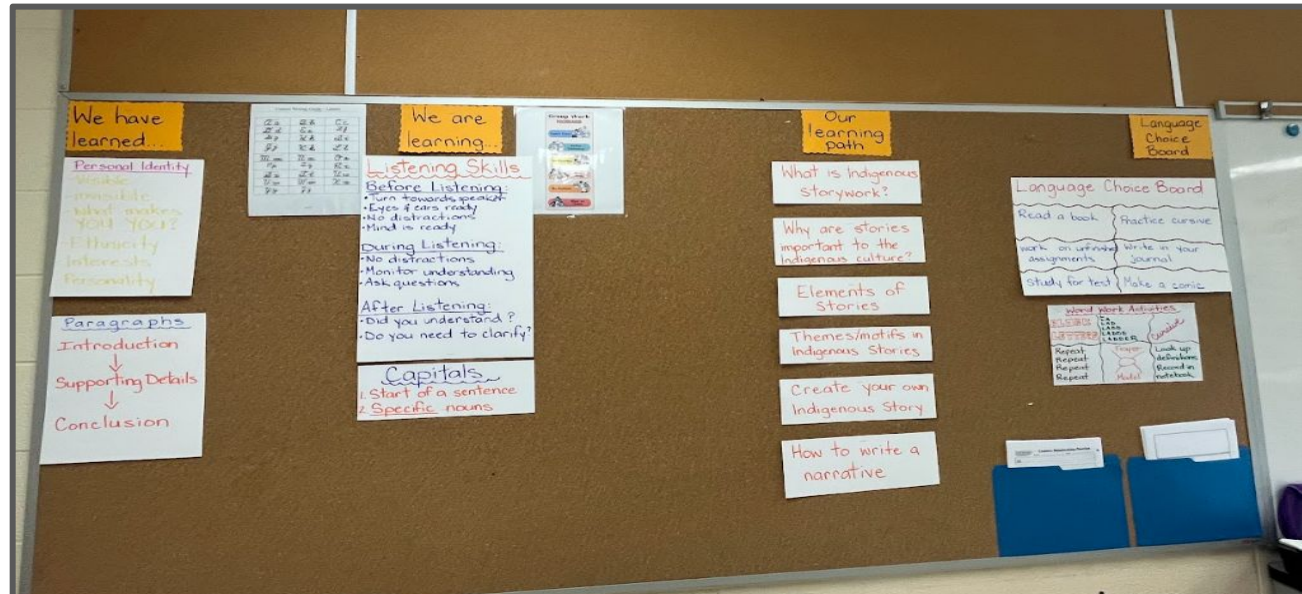 We have
learned...
Personal Identity
-Visible
-invisible
-What makes
YOU YOU?
-Ethnicity
Interests
Personality
Paragraphs
Introduction
Supporting Details
Conclusion
We are
learning...
Listening Skills
Before Listening:
•Turn towards speaker
•Eyes & ears ready
•No distractions
•Mind is ready
During Listening:
•No distractions
•Monitor understanding
•Ask questions
After Listening:
•Did you understand?
•Do you need to clarify?
Capitals
1. Start of a sentence
2. Specific nouns
Group Work
Our
learning
path
What is Indigenous
storywork?
Why are stories
important to the
Indigenous culture?
Elements of
Stories
Themes/motifs in
Indigenous Stories
Create your own
Indigenous Story
How to write a
narrative
Language
Choice
Board
Language Choice Board
Read a book
Practice cursive
work on unfinished
assignments
Write in your
journal
Study for test
Make a comic
Word Work Activities
LAD
LADDER
Cursive
Repeat
Repeat
Repeat
Repeat
Model
Look up
definitions
Record in
notebook